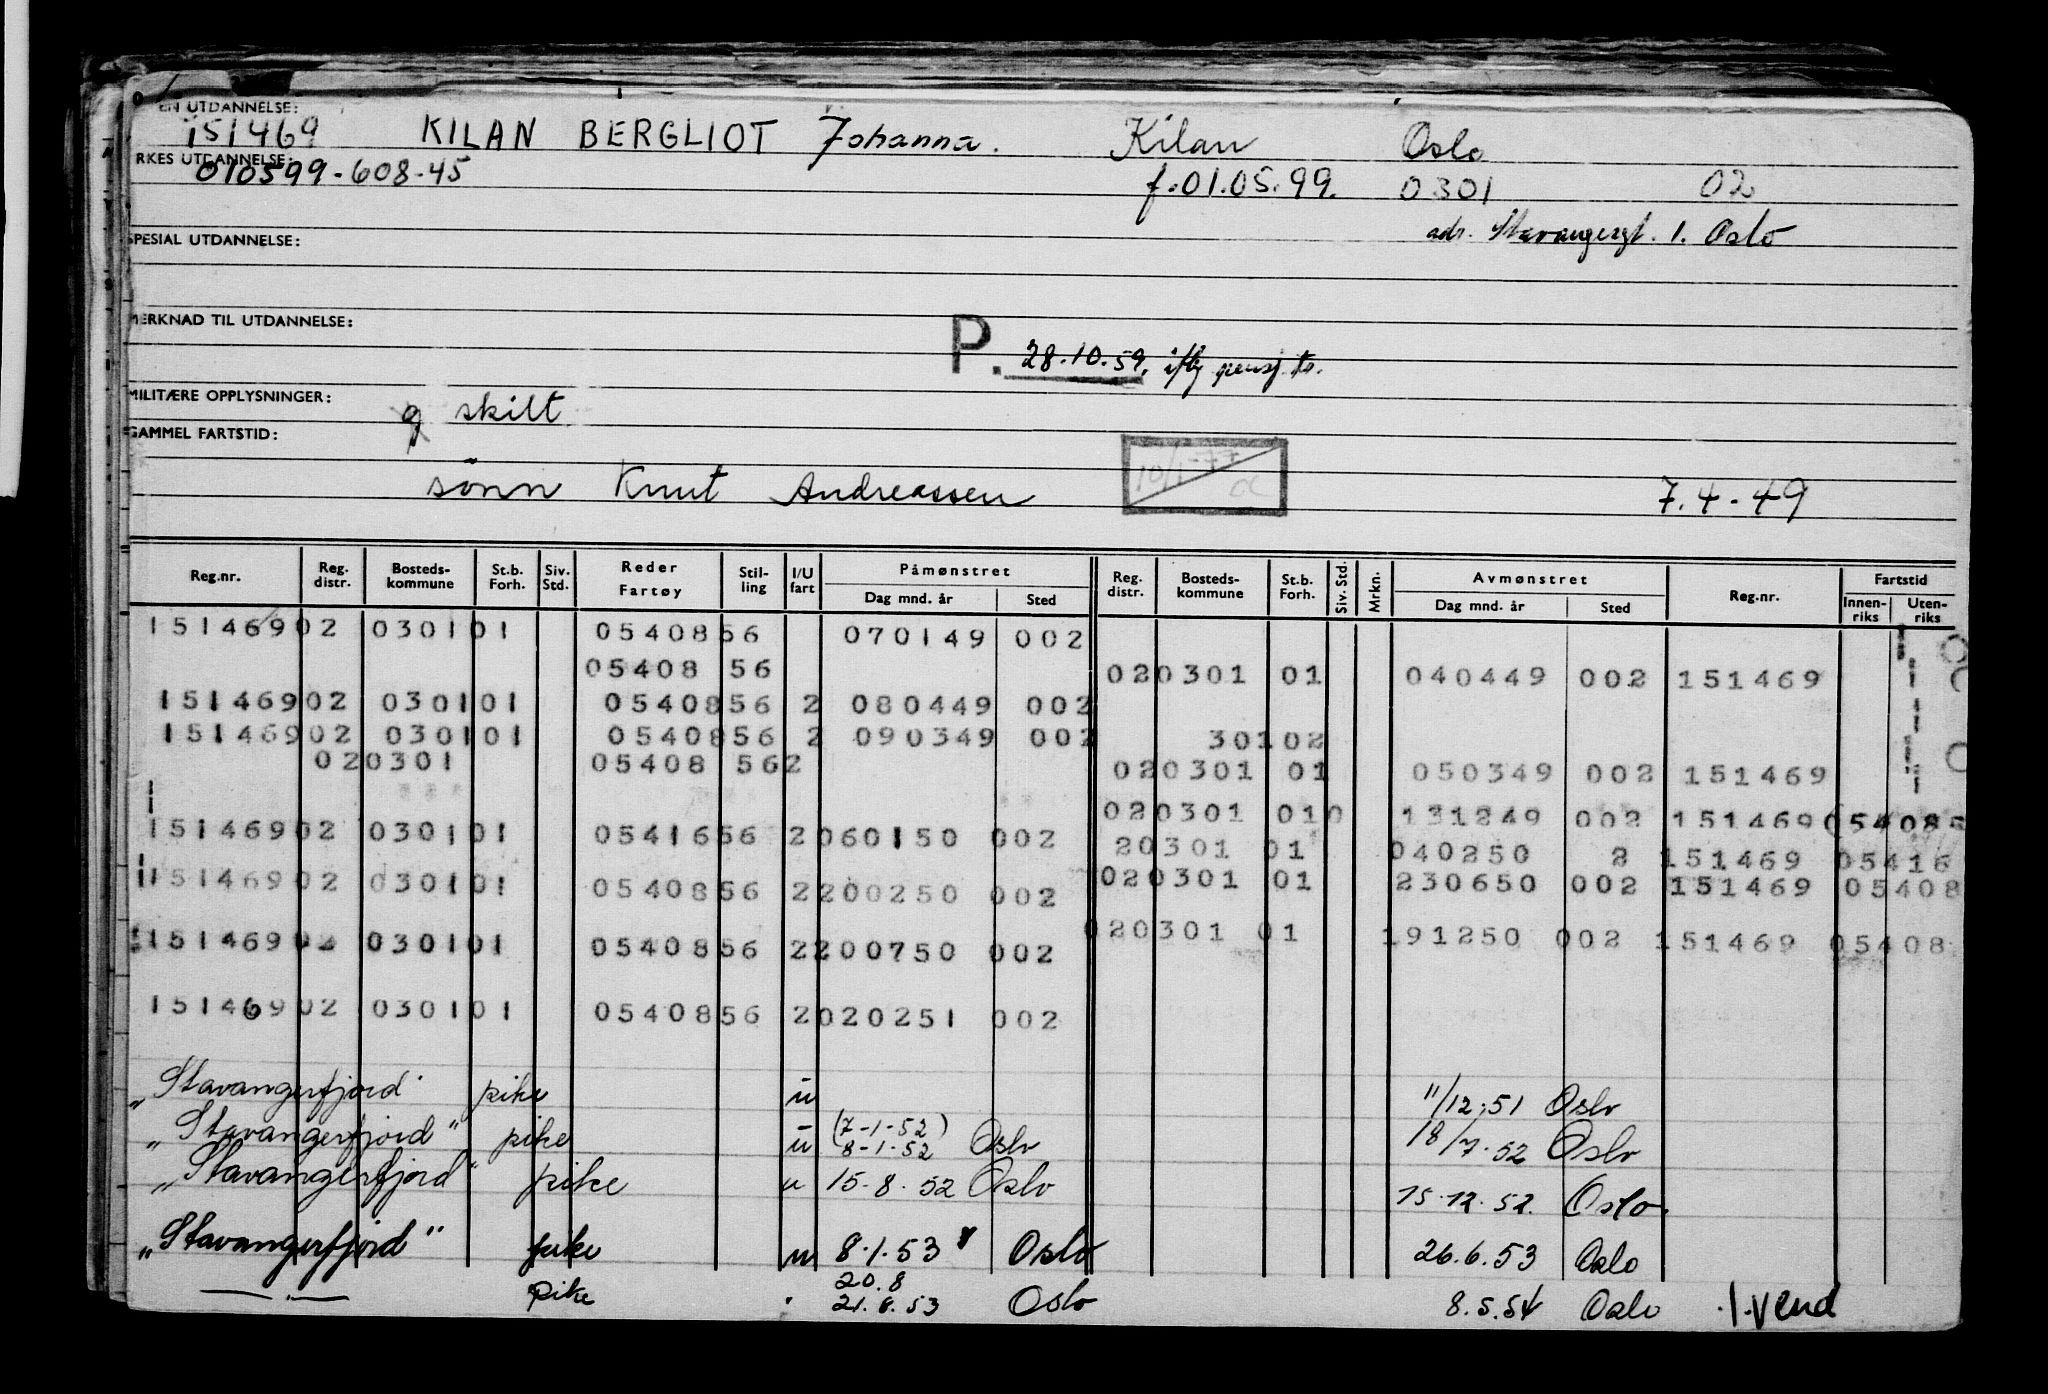 EN UTDANNELSE:
151469 KILAN BERGLIOT Johanna. Kilan Oslo
RKES UTDANNELSE:
010599-608-45 f.01.05.99. 0301 02
SPESIAL UTDANNELSE: adr. Stavangergt. 1. Oslo
MERKNAD TIL UTDANNELSE:
P. 28.10.59. iflg pensj. tr.
MILITÆRE OPPLYSNINGER: g skilt
GAMMEL FARTSTID:
sönn Knut Andreassen 10/1-77 7.4-49
Reg.nr. Reg. distr. Bosteds-kommune St.b. Forh. Siv. Std. Reder Fartøy Stil-ling I/U fart Påmønstret Dag mnd. år Sted Reg. distr. Bosteds-kommune St.b. Forh. Siv. Std. Mrkn. Avmønstret Dag mnd. år Sted Reg.nr. Fartstid Innen-riks Uten-riks
151469 02 0301 01 05408 56 070149 002
05408 56 02 0301 01 040449 002 151469
151469 02 0301 01 05408 56 2 080449 002
151469 02 0301 01 05408 56 2 090349 002 301 02
02 0301 05408 56 2 02 0301 01 050349 002 151469
02 0301 01 0 131249 002 151469 05408 5
151469 02 0301 01 05416 56 2 060150 002 2 0301 01 040250 2 151469 05416
151469 02 0301 01 05408 56 2 200250 002 02 0301 01 230650 002 151469 05408
151469 02 0301 01 05408 56 2 200750 002 02 0301 01 191250 002 151469 05408
151469 02 0301 01 05408 56 2 020251 002
"Stavangerfjord" pike u 11/12.51 Oslo
"Stavangerfjord" pike u (7-1-52) 8-1-52 Oslo 18/7.52 Oslo
"Stavangerfjord" pike u 15-8.52 Oslo 15.12.52. Oslo.
"Stavangerfjord" pike u 8.1.53 Oslo 26.6.53 Oslo
— . — pike 20.8 21.8.53 Oslo 8.5.54 Oslo .1.vend